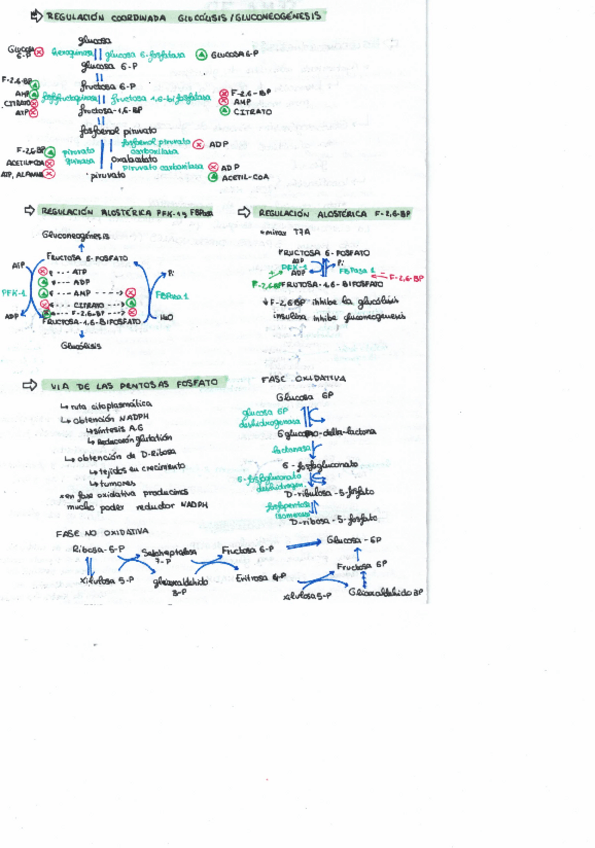 REGULACIÓN COORDINADA GLUCÓLISIS/GLUCONEOGÉNESIS
glucosa
Glucosa 6-P hexoquinasa glucosa 6-fosfatasa GLUCOSA 6-P
glucosa 6-P
F-2,6-BP
fructosa 6-P
AMP fosfofructoquinasa fructosa 1,6-bifosfatasa F-2,6-BP
CITRATO AMP
ATP fructosa-1,6-BP CITRATO
fosfoenol piruvato
fosfoenol piruvato carboxilasa ADP
F-2,6-BP piruvato quinasa
oxalacetato
ACETILCOA piruvato carboxilasa ADP
ATP, ALANINA piruvato ACETIL-COA
REGULACIÓN ALOSTÉRICA PFK-1 y FBPasa
Gluconeogénesis
FRUCTOSA 6-FOSFATO
ATP ATP Pi
ADP
PFK-1 AMP FBPasa 1
CITRATO
ADP F-2,6-BP H2O
FRUCTOSA-1,6-BIFOSFATO
Glucólisis
REGULACIÓN ALOSTÉRICA F-2,6-BP
*mirar T7A
FRUCTOSA 6-FOSFATO
PFK-1 ATP Pi
ADP FBPasa 1
F-2,6BP FRUCTOSA-1,6-BIFOSFATO F-2,6-BP
↓F-2,6BP inhibe la glucólisis
insulina inhibe gluconeogenesis
VIA DE LAS PENTOSAS FOSFATO
↳ ruta citoplasmática
↳ obtención NADPH
↳ síntesis A.G
↳ Reducción glutatión
↳ obtención de D-Ribosa
↳ tejidos en crecimiento
↳ tumores
*en fase oxidativa producimos
mucho poder reductor NADPH
FASE OXIDATIVA
Glucosa 6P
glucosa 6P
deshidrogenasa
6 glucono-delta-lactona
lactonasa
6-fosfogluconato
6-fosfogluconato
deshidrogen.
D-ribulosa-5-fosfato
fosfopentosa
isomerasa
D-ribosa-5-fosfato
FASE NO OXIDATIVA
Ribosa-5-P Sedoheptulosa 7-P Fructosa 6-P Glucosa-6P
Xilulosa 5-P gliceraldehido 3-P Eritrosa 4-P Fructosa 6P
xilulosa 5-P Gliceraldehido 3P